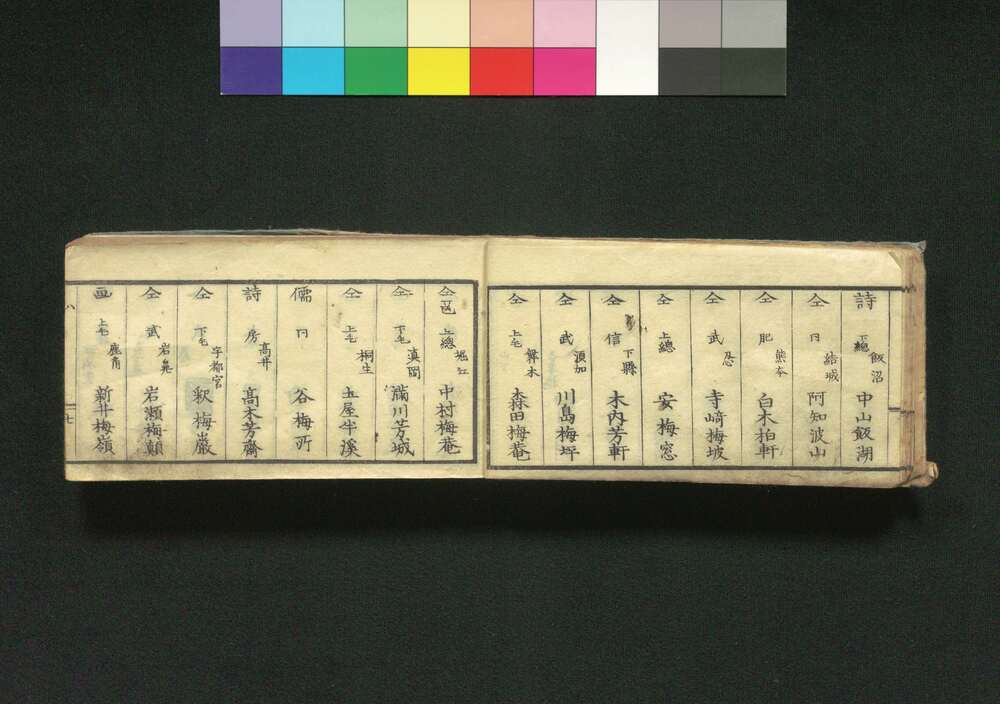 詩 下總 飯沼 中山飯湖
仝 同 結城 阿知波山
仝 肥 熊本 白木柏軒
仝 武 忍 寺﨑梅坡
仝 上總 安梅窓
仝 信 下縣 木内芳軒
仝 武 川島梅坪
仝 上毛 森田梅菴
仝 上總 堀江 中村梅菴
仝 下毛 真岡 滿川芳城
仝 上毛 桐生 五屋半溪
儒 同 谷梅所
詩 房 高井 髙木芳齋
仝 下毛 宇都宮 釈梅巖
仝 武 岩瀬梅顛
画 上毛 新井梅嶺
八
七